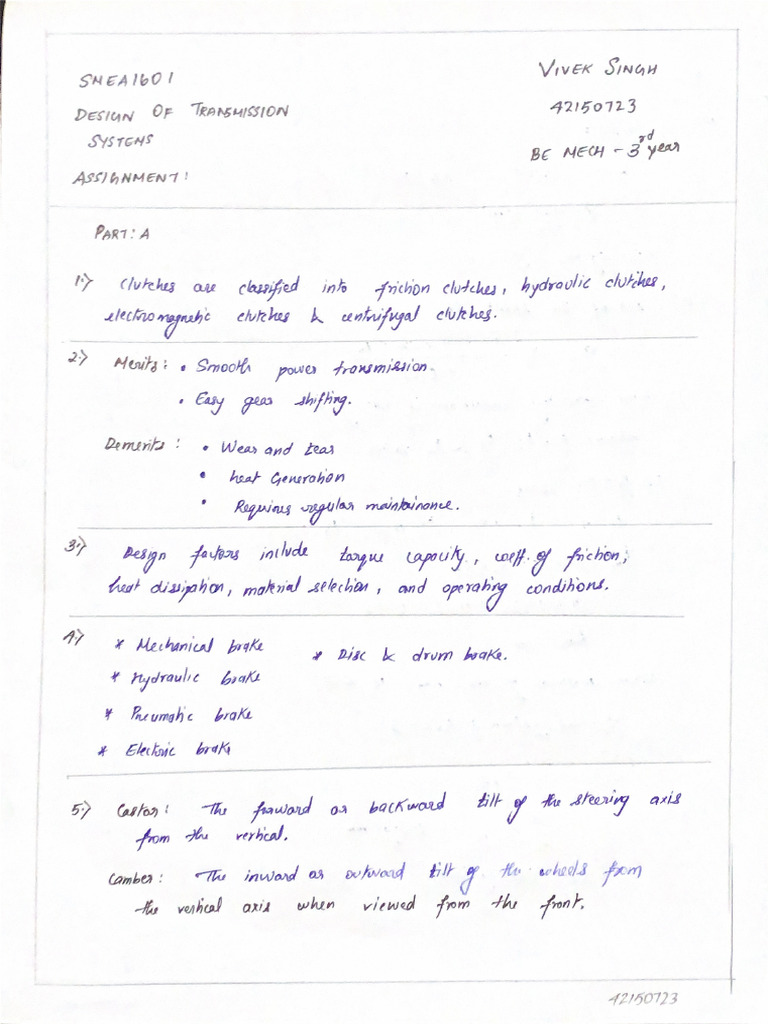 SMEA1601
DESIGN OF TRANSMISSION
SYSTEMS
ASSIGNMENT:
VIVEK SINGH
42150723
BE MECH - 3rd year
PART: A
1.) Clutches are classified into friction clutches, hydraulic clutches,
electromagnetic clutches & centrifugal clutches.
2.) Merits: • Smooth power transmission.
• Easy gear shifting.
Demerits: • Wear and tear
• heat Generation
• Requires regular maintainance.
3.) Design factors include torque capacity, coeff. of friction,
heat dissipation, material selection, and operating conditions.
4.) * Mechanical brake * Disc & drum brake.
* Hydraulic brake
* Pneumatic brake
* Electric brake
5.) Castor: The forward or backward tilt of the steering axis
from the vertical.
Camber: The inward or outward tilt of the wheels from
the vertical axis when viewed from the front.
42150723